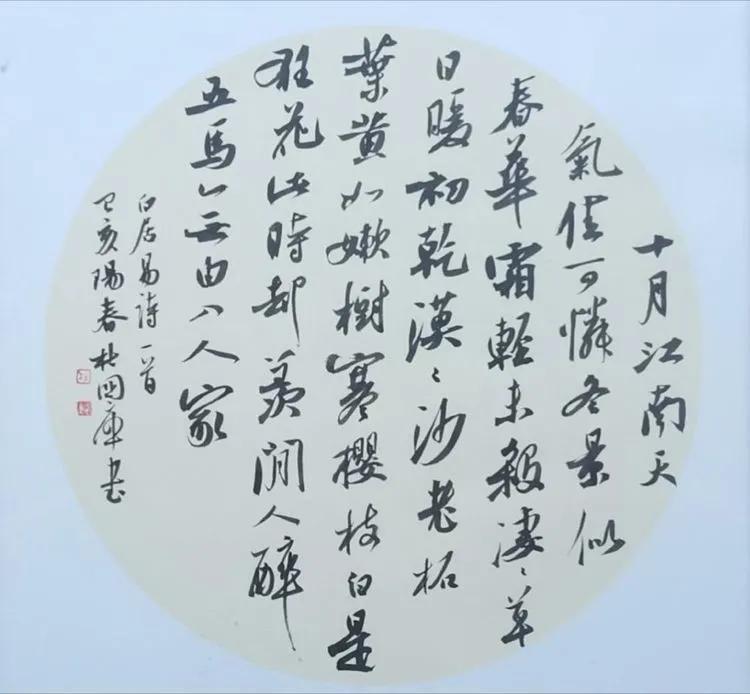 十月江南天
氣佳可憐冬景似
春華霜輕未殺淒〻草
日暖初乾漠〻沙老柘
葉黃如嫩樹寒櫻枝白是
狂花此時却羨閒人醉
五馬無由入人家
白居易詩一首
己亥陽春杜国庫书